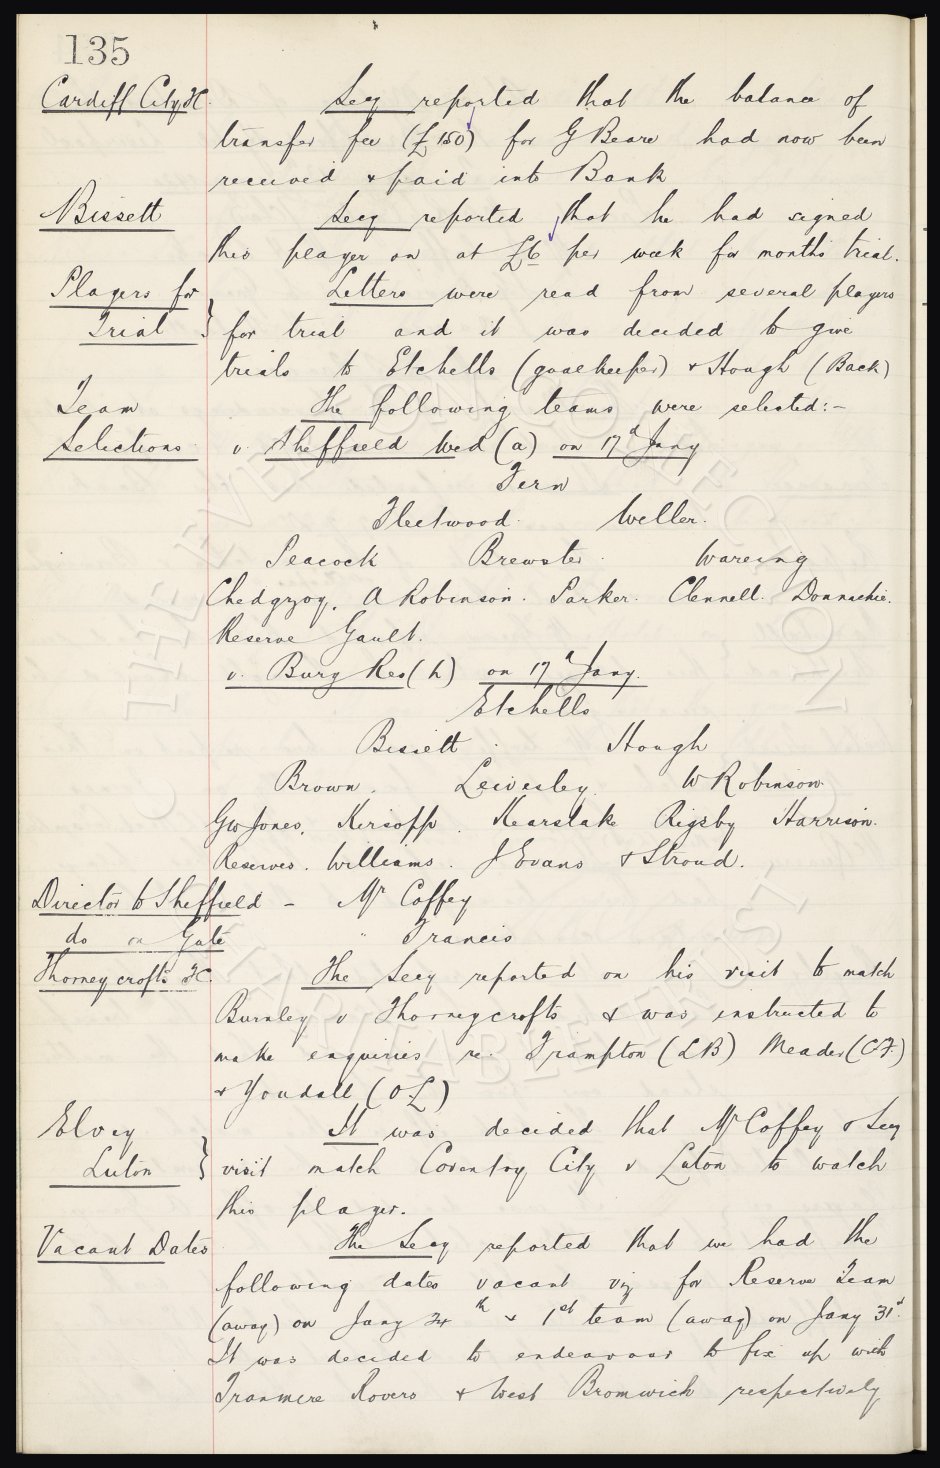 135
Cardiff City FC. Secy reported that the balance of
transfer fee (£150) for G Beare had now been
received & paid into Bank
Bissett Secy reported that he had signed
this player on at £6 per week for months trial.
Players for Letters were read from several players
Trial } for trial and it was decided to give
trials to Etchells (goalkeeper) & Hough (Back)
Team The following teams were selected:-
Selections v. Sheffield Wed (a) on 17th Jany
Fern
Fleetwood. Weller.
Peacock Brewster. Wareing
Chedgzoy. A Robinson. Parker. Clennell. Donnachie.
Reserve Gault.
v. Bury Res (h) on 17th Jany.
Etchells
Bissett. Hough
Brown. Leivesley. W Robinson.
Gw Jones. Kirsopp. Kearslake Rigsby Harrison.
Reserves. Williams. J Evans & Stroud.
Director to Sheffield - Mr Coffey
do on Gate " Francis
Thorneycrofts FC. The Secy reported on his visit to match
Burnley v Thorneycrofts & was instructed to
make enquiries re. Frampton (LB) Meader (CF.)
& Youdall (OL)
Elvey It was decided that Mr Coffey & Secy
Luton } visit match Coventry City v Luton to watch
this player.
Vacant Dates The Secy reported that we had the
following dates vacant viz for Reserve Team
(away) on Jany 24th & 1st team (away) on Jany 31st.
It was decided to endeavour to fix up with
Tranmere Rovers & West Bromwich respectively